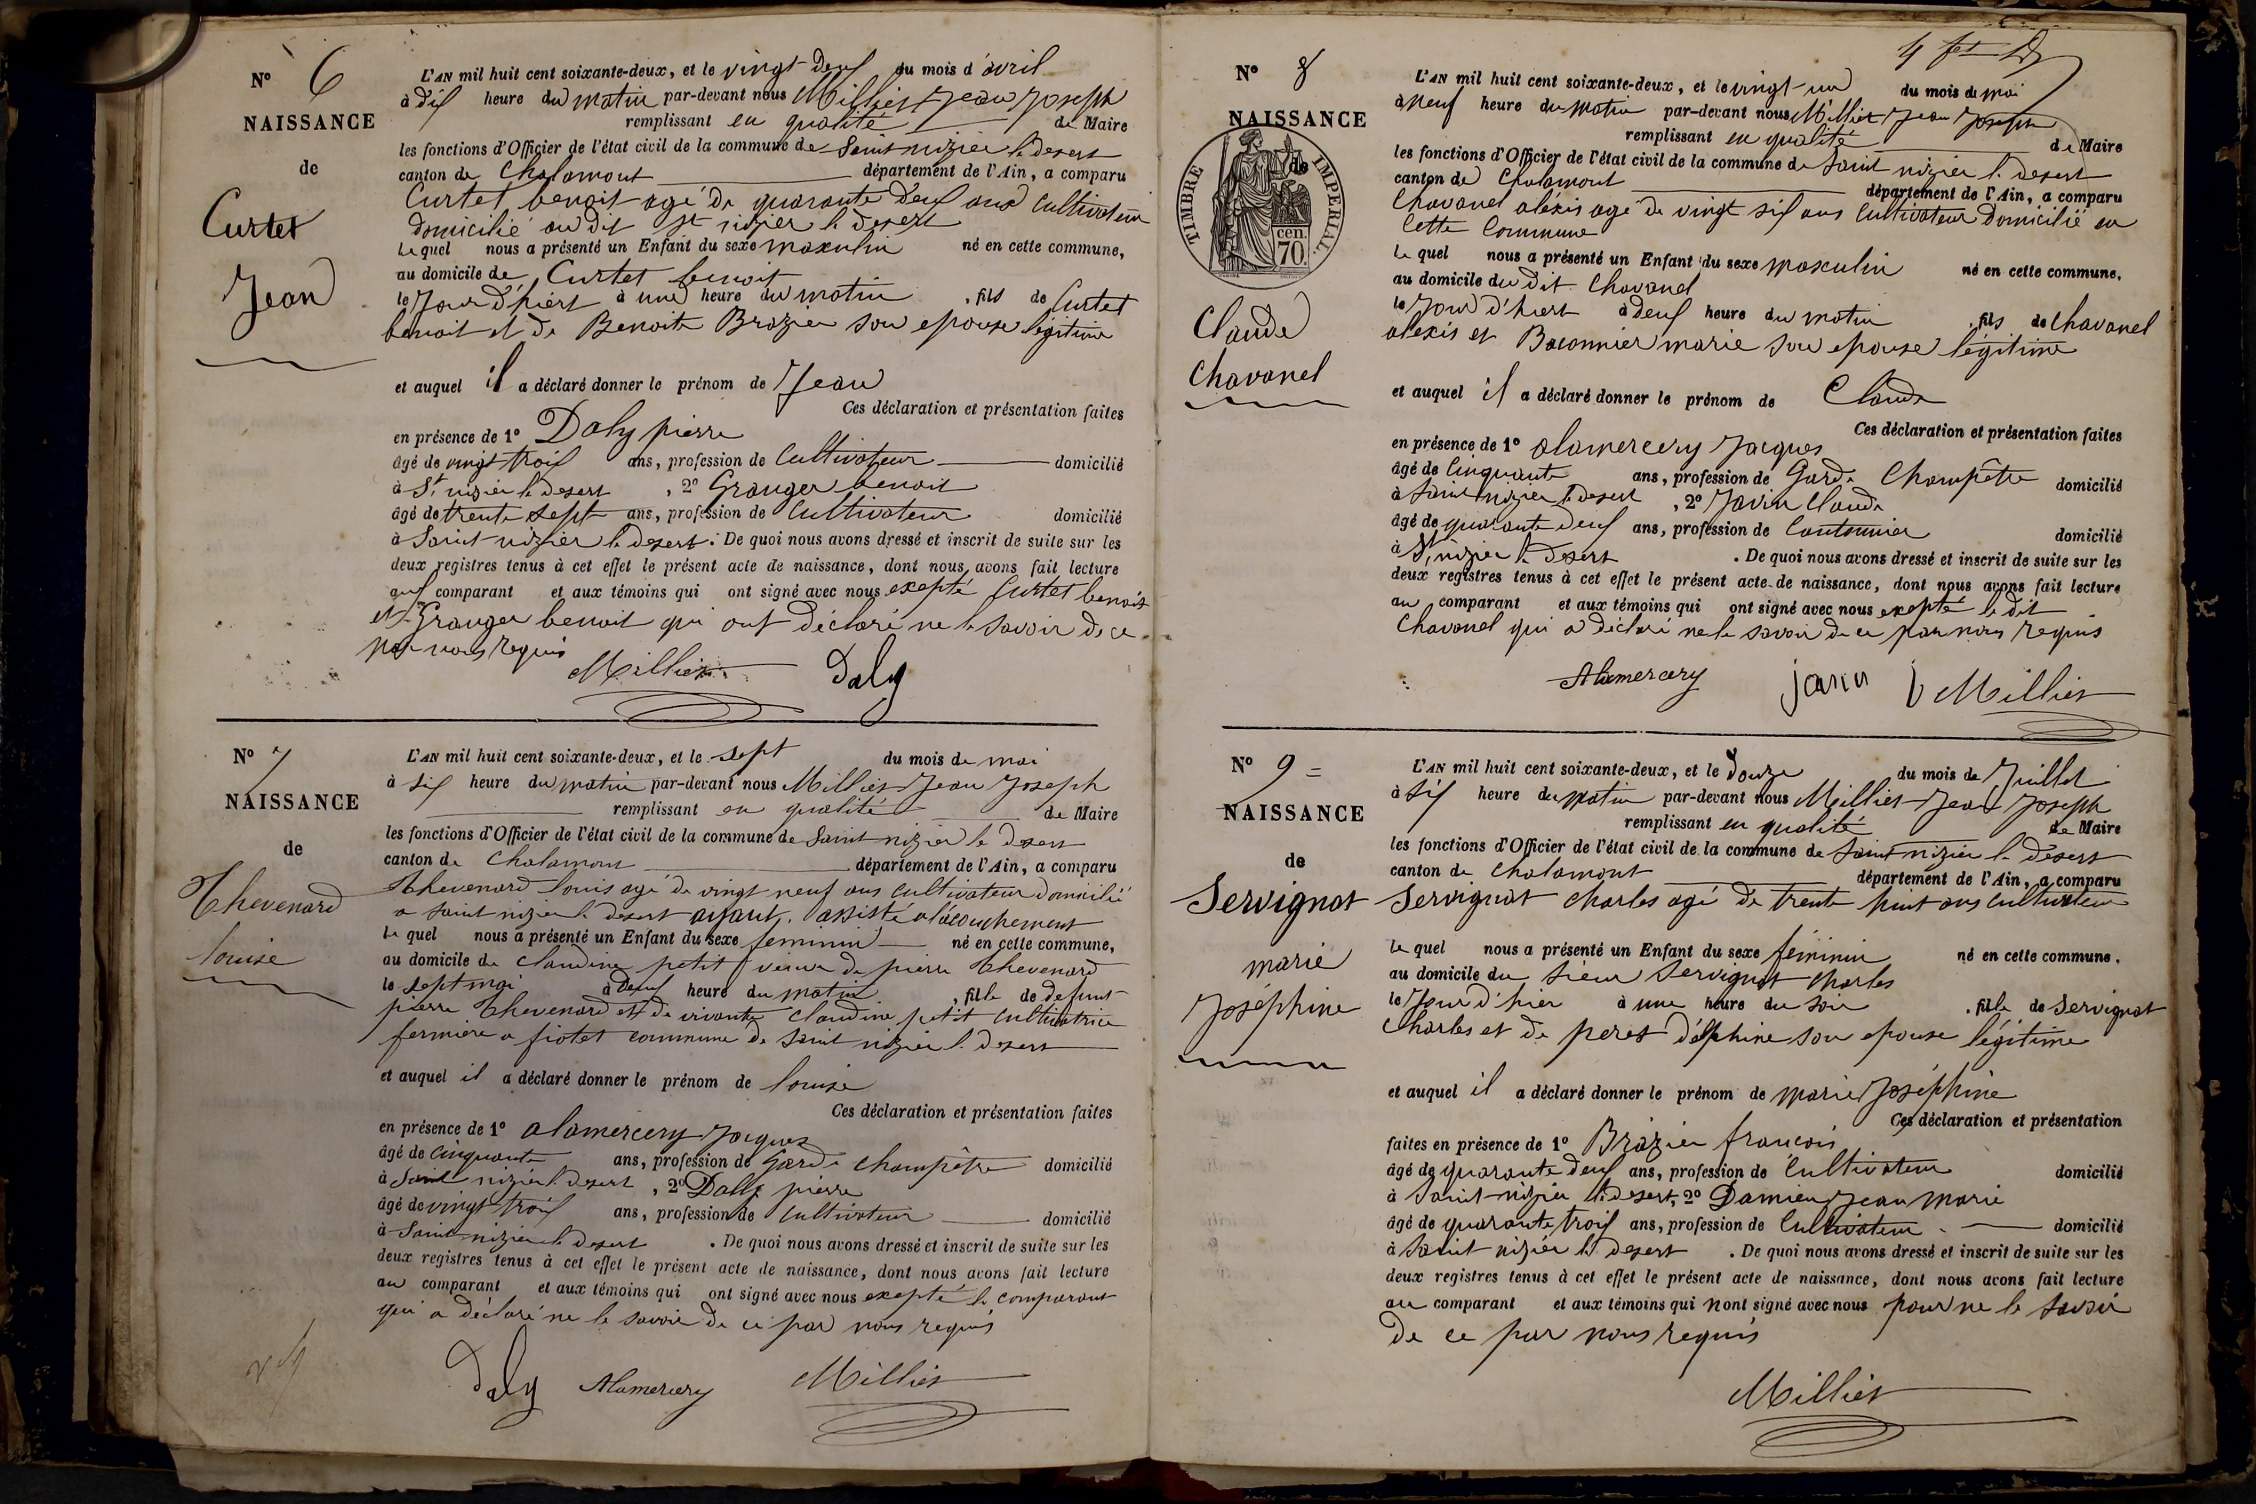 N° 6
NAISSANCE
de
Curtet
Jean
L'AN mil huit cent soixante-deux, et le vingt deux du mois d'avril
à dix heure du matin par-devant nous Millier Jean Joseph
remplissant en qualité de Maire
les fonctions d'Officier de l'état civil de la commune de Saint nizier le desert
canton de Chalamont département de l'Ain, a comparu
Curtet benoit agé de quarante deux ans cultivateur
domicilié au dit St nizier le desert
le quel nous a présenté un Enfant du sexe masculin né en cette commune,
au domicile de Curtet benoit
le Jour d'hiert à une heure du matin, fils de Curtet
benoit et de Benoite Brazier son epouse légitime
et auquel il a déclaré donner le prénom de Jean
Ces déclaration et présentation faites
en présence de 1° Daly pierre
âgé de vingt trois ans, profession de Cultivateur domicilié
à St nizier le desert, 2° Granger benoit
âgé de trente sept ans, profession de Cultivateur domicilié
à Saint nizier le desert. De quoi nous avons dressé et inscrit de suite sur les
deux registres tenus à cet effet le présent acte de naissance, dont nous avons fait lecture
aux comparant et aux témoins qui ont signé avec nous exepté Curtet benoit
et Granger benoit qui ont déclaré ne le savoir de ce
par nous requis
Millier Daly
N° 7
NAISSANCE
de
Thevenard
louise
L'AN mil huit cent soixante-deux, et le sept du mois de mai
à six heure du matin par-devant nous Millier Jean Joseph
remplissant en qualité de Maire
les fonctions d'Officier de l'état civil de la commune de Saint nizier le desert
canton de Chalamont département de l'Ain, a comparu
Thevenard louis agé de vingt neuf ans cultivateur domicilié
a saint nizier le desert ayant assisté a l'acouchement
le quel nous a présenté un Enfant du sexe feminin né en cette commune,
au domicile de claudine petit veuve de pierre Thevenard
le sept mai à deux heure du matin, fille de defunt
pierre Thevenard et de vivante claudine petit cultivatrice
fermière a fiotet commune de Saint nizier le desert
et auquel il a déclaré donner le prénom de louise
Ces déclaration et présentation faites
en présence de 1° alamercery Jacques
âgé de Cinquante ans, profession de Garde Champêtre domicilié
à Saint nizier le desert, 2° Daly pierre
âgé de vingt trois ans, profession de Cultivateur domicilié
à Saint nizier le desert. De quoi nous avons dressé et inscrit de suite sur les
deux registres tenus à cet effet le présent acte de naissance, dont nous avons fait lecture
au comparant et aux témoins qui ont signé avec nous exepté le comparant
qui a déclaré ne le savoir de ce par nous requis
Daly Alamercery Millier
N° 8
NAISSANCE
de
TIMBRE IMPERIAL
70 cen.
Claude
Chavanel
L'AN mil huit cent soixante-deux, et le vingt-un du mois de mai
à Neuf heure du matin par-devant nous Millier Jean Joseph
remplissant en qualité de Maire
les fonctions d'Officier de l'état civil de la commune de Saint nizier le desert
canton de Chalamont département de l'Ain, a comparu
Chavanel alexis agé de vingt six ans Cultivateur domicilié en
cette Commune
le quel nous a présenté un Enfant du sexe masculin né en cette commune,
au domicile du dit Chavanel
le Jour d'hiert à deux heure du matin, fils de Chavanel
alexis et Baconnier marie son epouse légitime
et auquel il a déclaré donner le prénom de Claude
Ces déclaration et présentation faites
en présence de 1° alamercery Jacques
âgé de Cinquante ans, profession de Garde Champêtre domicilié
à Saint nizier le desert, 2° Javin Claude
âgé de quarante deux ans, profession de Cantonnier domicilié
à St nizier le Desert. De quoi nous avons dressé et inscrit de suite sur les
deux registres tenus à cet effet le présent acte de naissance, dont nous avons fait lecture
au comparant et aux témoins qui ont signé avec nous exepté le dit
Chavanel qui a déclaré ne le savoir de ce par nous requis
Alamercery javin Millier
N° 9
NAISSANCE
de
Servignat
marie
Joséphine
L'AN mil huit cent soixante-deux, et le Douze du mois de Juillet
à Six heure du matin par-devant nous Millier Jean Joseph
remplissant en qualité de Maire
les fonctions d'Officier de l'état civil de la commune de Saint nizier le desert
canton de Chalamont département de l'Ain, a comparu
Servignat Charles agé de trente huit ans cultivateur
le quel nous a présenté un Enfant du sexe féminin né en cette commune,
au domicile du Sieur Servignat Charles
le Jour d'hier à une heure du soir, fille de Servignat
Charles et de peret délphine son epouse légitime
et auquel il a déclaré donner le prénom de marie Joséphine
Ces déclaration et présentation
faites en présence de 1° Brazier francois
âgé de quarante deux ans, profession de Cultivateur domicilié
à Saint nizier le desert, 2° Damien Jean marie
âgé de quarante trois ans, profession de Cultivateur domicilié
à Saint nizier le desert. De quoi nous avons dressé et inscrit de suite sur les
deux registres tenus à cet effet le présent acte de naissance, dont nous avons fait lecture
au comparant et aux témoins qui nont signé avec nous pour ne le savoir
de ce par nous requis
Millier